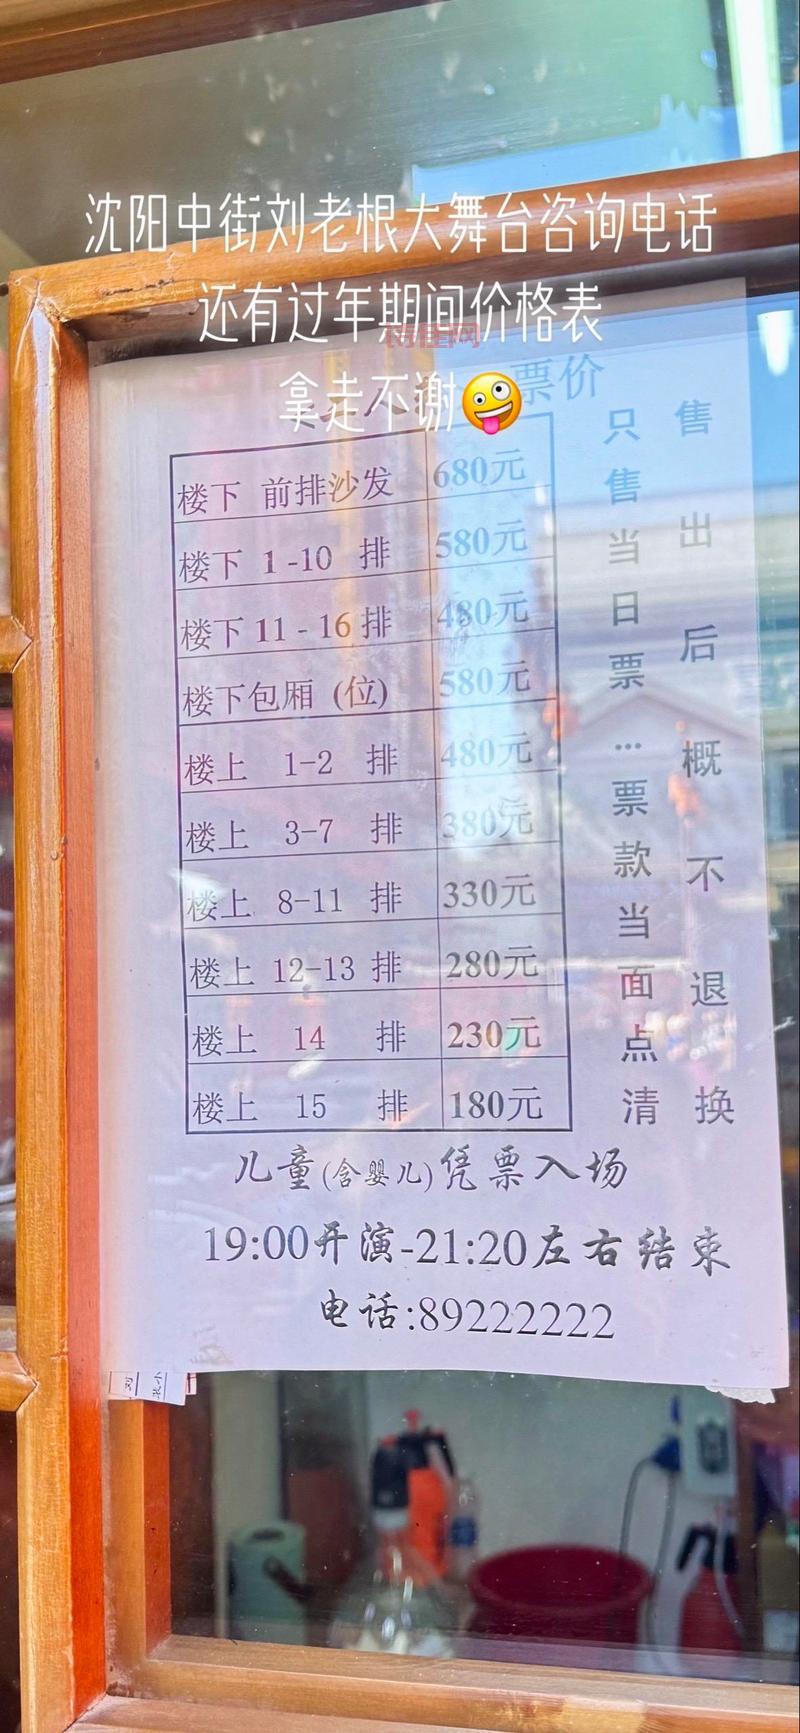 沈阳中街刘老根大舞台咨询电话
还有过年期间价格表
拿走不谢🤪
票价
楼下 前排沙发 680元
楼下 1-10 排 580元
楼下 11-16 排 480元
楼下包厢 (位) 580元
楼上 1-2 排 480元
楼上 3-7 排 380元
楼上 8-11 排 330元
楼上 12-13 排 280元
楼上 14 排 230元
楼上 15 排 180元
只售当日票…票款当面点清
售出后概不退换
儿童(含婴儿)凭票入场
19:00开演-21:20左右结束
电话:89222222